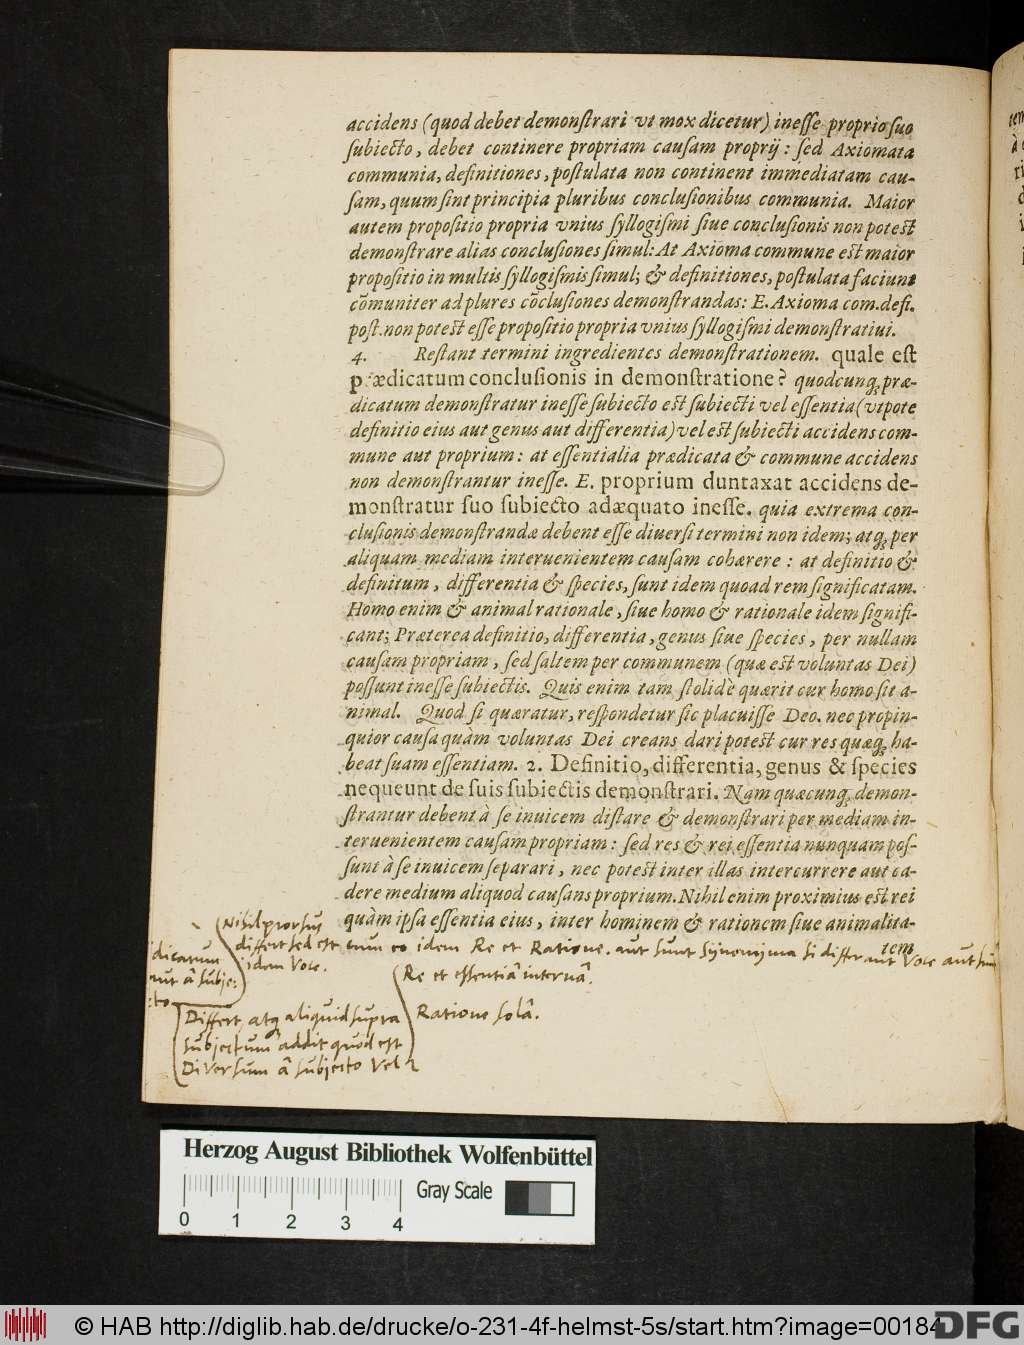 accidens (quod debet demonstrari vt mox dicetur) inesse proprio suo
subiecto, debet continere propriam causam proprij: sed Axiomata
communia, definitiones, postulata non continent immediatam cau-
sam, quum sint principia pluribus conclusionibus communia. Maior
autem propositio propria vnius syllogismi siue conclusionis non potest
demonstrare alias conclusiones simul: At Axioma commune est maior
propositio in multis syllogismis simul; & definitiones, postulata faciunt
cōmuniter ad plures cōclusiones demonstrandas: E. Axioma com. defi.
post. non potest esse propositio propria vnius syllogismi demonstratiui.
4. Restant termini ingredientes demonstrationem. quale est
prædicatum conclusionis in demonstratione? quodcunq; præ-
dicatum demonstratur inesse subiecto est subiecti vel essentia (vtpote
definitio eius aut genus aut differentia) vel est subiecti accidens com-
mune aut proprium: at essentialia prædicata & commune accidens
non demonstrantur inesse. E. proprium duntaxat accidens de-
monstratur suo subiecto adæquato inesse. quia extrema con-
clusionis demonstrandæ debent esse diuersi termini non idem; atq; per
aliquam mediam interuenientem causam cohærere: at definitio &
definitum, differentia & species, sunt idem quoad rem significatam.
Homo enim & animal rationale, siue homo & rationale idem signifi-
cant; Præterea definitio, differentia, genus siue species, per nullam
causam propriam, sed saltem per communem (quæ est voluntas Dei)
possunt inesse subiectis. Quis enim tam stolidè quærit cur homo sit a-
nimal. Quod si quæratur, respondetur sic placuisse Deo. nec propin-
quior causa quàm voluntas Dei creans dari potest cur res quæq; ha-
beat suam essentiam. 2. Definitio, differentia, genus & species
nequeunt de suis subiectis demonstrari. Nam quæcunq; demon-
strantur debent à se inuicem distare & demonstrari per mediam in-
teruenientem causam propriam: sed res & rei essentia nunquam pos-
sunt à se inuicem separari, nec potest inter illas intercurrere aut ca-
dere medium aliquod causans proprium. Nihil enim proximius est rei
quàm ipsa essentia eius, inter hominem & rationem siue animalita-
tem
Nihil prorsus
differt sed est cum eo idem Re et Ratione. aut sunt Synonyma si differant Voce aut sun
idem Voce.
dicatum
aut â subje-
cto
Re et essentiâ internâ.
Differt, atq aliquid supra
Ratione solâ.
subjectum addit quod est
Diversum â subjecto vel
Herzog August Bibliothek Wolfenbüttel
Gray Scale
0 1 2 3 4
© HAB http://diglib.hab.de/drucke/o-231-4f-helmst-5s/start.htm?image=00184
DFG